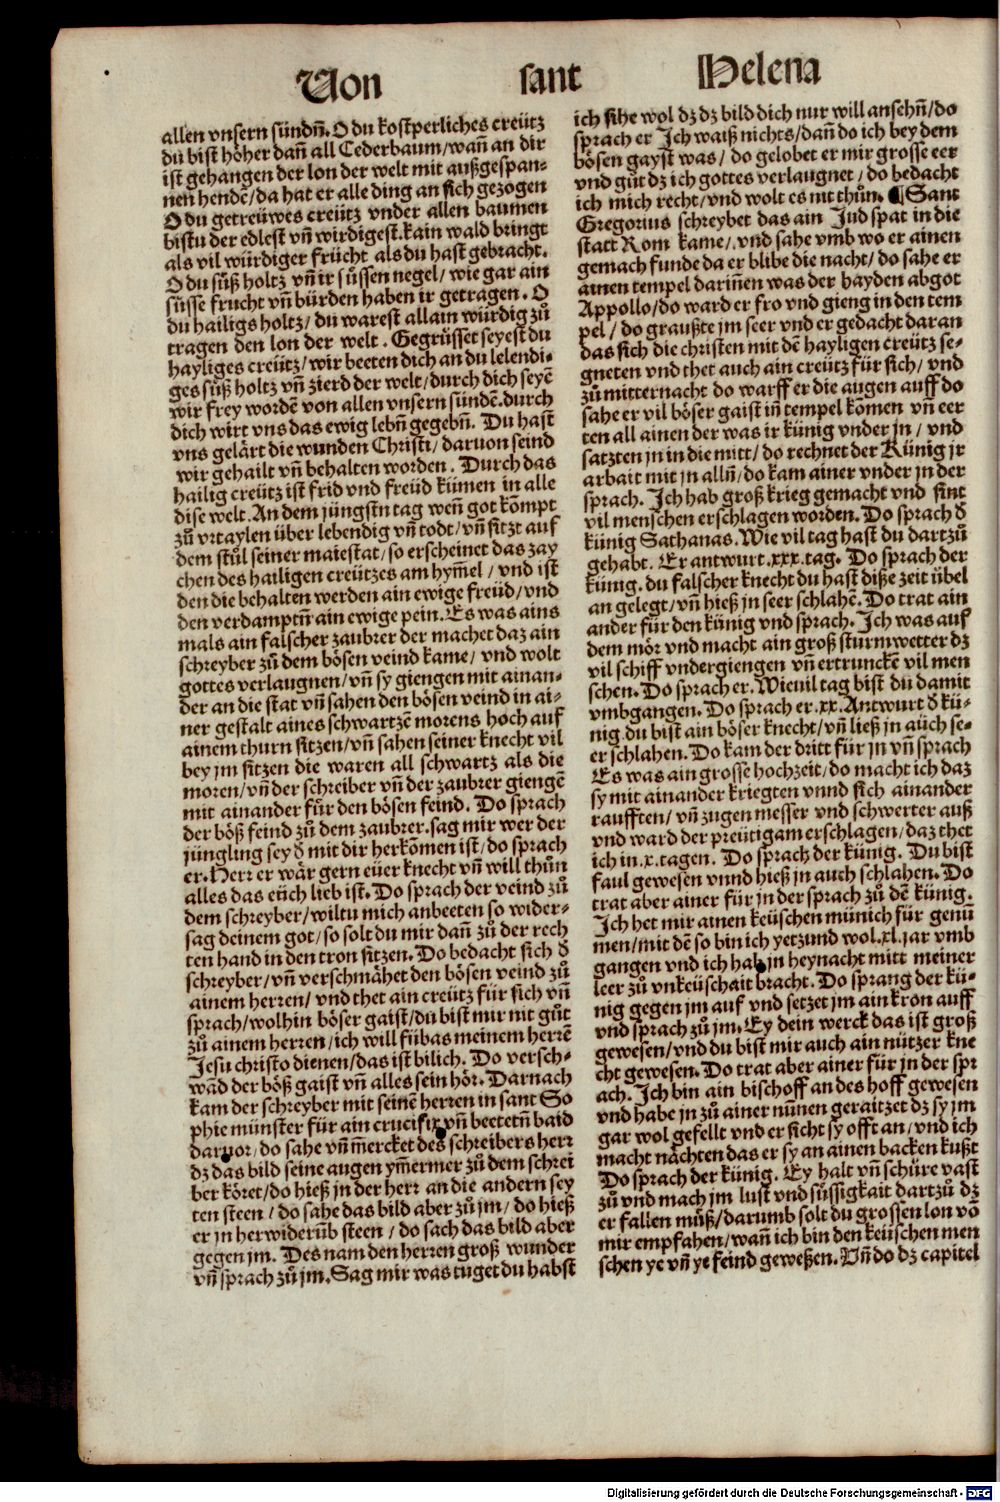 Von sant Helena
allen vnsern sündn̄. O du kostperliches creütz
du bist höher dan̄ all Cederbaum/wan̄ an dir
ist gehangen der lon der welt mit außgespan-
nen hendē/da hat er alle ding an sich gezogen
O du getreüwes creütz vnder allen baumen
bistu der edlest vn̄ wirdigest. kain wald bringt
als vil würdiger frücht als du hast gebracht.
O du süß holtz vn̄ ir süssen negel/ wie gar ain
süsse frucht vn̄ bürden haben ir getragen. O
du hailigs holtz/ du warest allain würdig zů
tragen den lon der welt. Gegrüsset seyest du
hayliges creütz/wir beeten dich an du lelendi-
ges süß holtz vn̄ zierd der welt/durch dich seyē
wir frey wordē von allen vnsern sündē. durch
dich wirt vns das ewig lebn̄ gegebn̄. Du hast
vns gelärt die wunden Christi/ daruon seind
wir gehailt vn̄ behalten worden. Durch das
hailig creütz ist frid vnd freüd kūmen in alle
dise welt. An dem jüngstn tag wen̄ got kōmpt
zů vrtaylen über lebendig vn̄ todt/vn̄ sitzt auf
dem stůl seiner maiestat/so erscheinet das zay
chen des hailigen creützes am hym̄el/ vnd ist
den die behalten werden ain ewige freüd/vnd
den verdamptn̄ ain ewige pein. Es was ains
mals ain falscher zaubrer der machet daz ain
schreyber zů dem bösen veind kame/ vnd wolt
gottes verlaugnen/vn̄ sy giengen mit ainan-
der an die stat vn̄ sahen den bösen veind in ai-
ner gestalt aines schwartzē morens hoch auf
ainem thurn sitzen/vn̄ sahen seiner knecht vil
bey jm sitzen die waren all schwartz als die
moren/vn̄ der schreiber vn̄ der zaubrer giengē
mit ainander für den bösen feind. Do sprach
der böß feind zů dem zaubrer. sag mir wer der
jüngling sey d̄ mit dir herkōmen ist/do sprach
er. Herr er wär gern eüer knecht vn̄ will thůn
alles das eüch lieb ist. Do sprach der veind zů
dem schreyber/wiltu mich anbeeten so wider-
sag deinem got/so solt du mir dan̄ zů der rech
ten hand in den tron sitzen. Do bedacht sich d̄
schreyber/vn̄ verschmähet den bösen veind zů
ainem herren/ vnd thet ain creütz für sich vn̄
sprach/wolhin böser gaist/du bist mir nit gůt
zů ainem herren/ich will fübas meinem herrē
Jesu christo dienen/das ist bilich. Do versch-
wād der böß gaist vn̄ alles sein hör. Darnach
kam der schreyber mit seinē herren in sant So
phie münster für ain crucifix vn̄ beetetn̄ baid
daruor/do sahe vn̄ m̄ercket des schreibers herr
dz das bild seine augen ym̄ermer zů dem schrei
ber köret/do hieß jn der herr an die andern sey
ten steen/ do sahe das bild aber zů jm/ do hieß
er jn herwiderūb steen/ do sach das bild aber
gegen jm. Des nam den herren groß wunder
vn̄ sprach zů jm. Sag mir was tuget du habst
ich sihe wol dz dz bild dich nur will ansehn̄/do
sprach er Ich waiß nichts/dan̄ do ich bey dem
bösen gayst was/ do gelobet er mir grosse eer
vnd gůt dz ich gottes verlaugnet/do bedacht
ich mich recht/vnd wolt es nit thůn. ¶ Sant
Gregorius schreybet das ain Jud spat in die
statt Rom kame/. vnd sahe vmb wo er ainen
gemach funde da er blibe die nacht/ do sahe er
ainen tempel darin̄en was der hayden abgot
Appollo/do ward er fro vnd gieng in den tem
pel/ do graußte jm seer vnd er gedacht daran
das sich die christen mit dē hayligen creütz se-
gneten vnd thet auch ain creütz für sich/ vnd
zů mitternacht do warff er die augen auff do
sahe er vil böser gaist in̄ tempel kōmen vn̄ eer
ten all ainen der was ir künig vnder jn/ vnd
satzten jn in die mitt/ do rechnet der Künig jr
arbait mit jn alln̄/do kam ainer vnder jn der
sprach. Ich hab groß krieg gemacht vnd sint
vil menschen erschlagen worden. Do sprach d̄
künig Sathanas. Wie vil tag hast du dartzů
gehabt. Er antwurt .xxx. tag. Do sprach der
künig. du falscher knecht du hast diße zeit übel
an gelegt/vn̄ hieß jn seer schlahē. Do trat ain
ander für den künig vnd sprach. Ich was auf
dem mör vnd macht ain groß sturmwetter dz
vil schiff vndergiengen vn̄ ertrunckē vil men
schen. Do sprach er. Wieuil tag bist du damit
vmbgangen. Do sprach er .xx. Antwurt d̄ kü-
nig. du bist ain böser knecht/vn̄ ließ jn auch se-
er schlahen. Do kam der dritt für jn vn̄ sprach
Es was ain grosse hochzeit/do macht ich daz
sy mit ainander kriegten vnnd sich ainander
raufften/ vn̄ zugen messer vnd schwerter auß
vnd ward der preütigam erschlagen/daz thet
ich in .x. tagen. Do sprach der künig. Du bist
faul gewesen vnnd hieß jn auch schlahen. Do
trat aber ainer für jn der sprach zů dē künig.
Ich het mir ainen keüschen münich für genū
men/mit dē so bin ich yetzund wol .xl. jar vmb
gangen vnd ich hab jn heynacht mitt meiner
leer zů vnkeüschait bracht. Do sprang der kü-
nig gegen jm auf vnd setzet jm ain kron auff
vnd sprach zů jm. Ey dein werck das ist groß
gewesen/vnd du bist mir auch ain nützer kne
cht gewesen. Do trat aber ainer für jn der spr
ach. Ich bin ain bischoff an des hoff gewesen
vnd habe jn zů ainer nūnen geraitzet dz sy jm
gar wol gefellt vnd er sicht sy offt an/vnd ich
macht nächten das er sy an ainen backen kußt
Do sprach der künig. Ey halt vn̄ schüre vast
zů vnd mach jm lust vnd süssigkait dartzů dz
er fallen můß/darumb solt du grossen lon vō
mir empfahen/wan̄ ich bin den keüschen men
schen ye vn̄ ye feind geweßen. Vn̄ do dz capitel
Digitalisierung gefördert durch die Deutsche Forschungsgemeinschaft - DFG